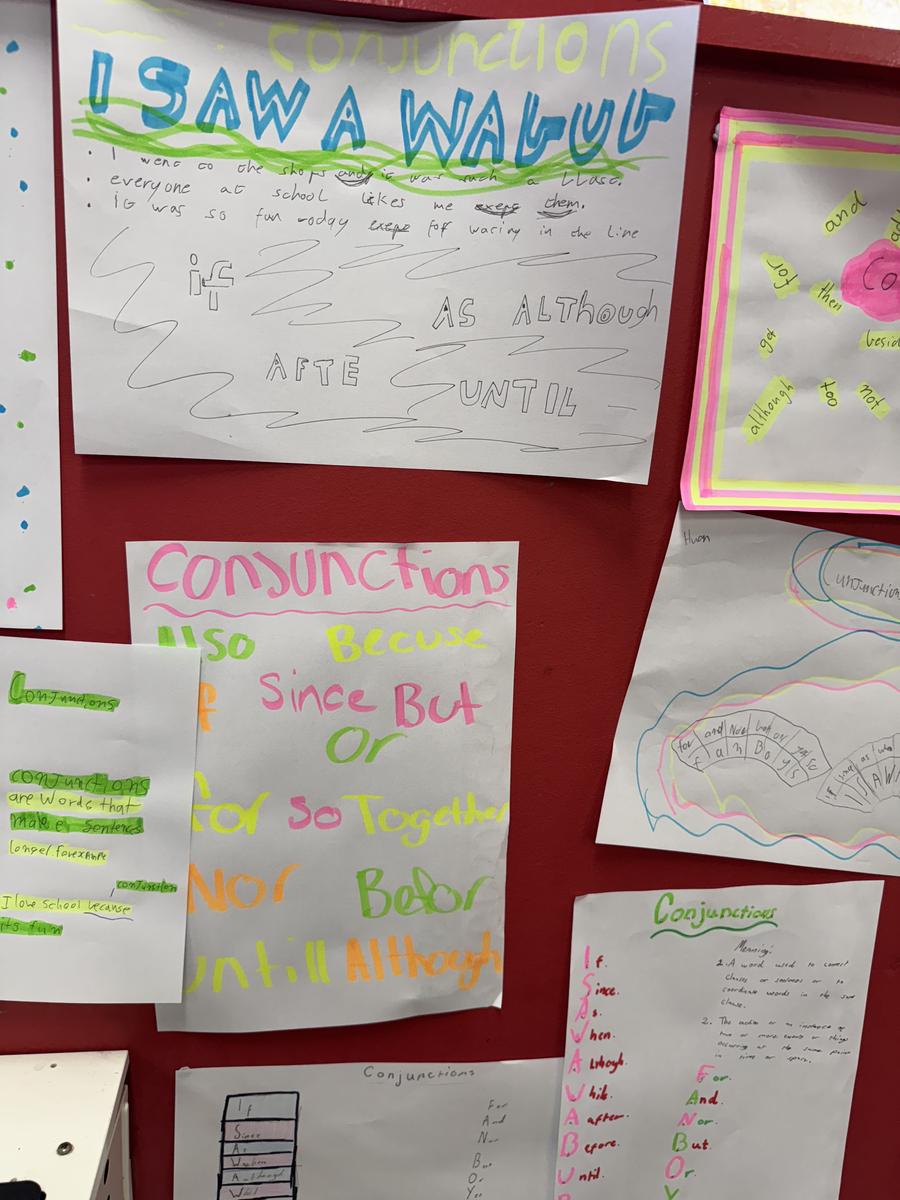 conjunctions
I SAW A WABUB
I went to the shops and it was such a blast.
everyone at school likes me exept them.
it was so fun today exept for waring in the line
if
AS ALThough
AFTE
UNTIL
and
for
then
Co
get
besid
although
too
not
Conjunctions
Also Becuse
f Since But
Or
for So Together
Nor Befor
untill Although
Conjunctions
conjunctions
are words that
make a sentence
longer. forexample
conjunction
I love school because
its fun
Huon
unjunction
for and Nor but or yet so
f a n B o y s
I S A W
Conjunctions
If.
Since.
As.
When.
Although.
While.
After.
Before.
Until.
Meaning:
1. A word used to connect
clauses or sentences or to
coordinate words in the same
clause.
2. The action or an instance of
two or more events or things
occurring at the same point
in time or space.
For.
And.
Nor.
But
Or.
Y
Conjunctions
If
Since
As
When
Although
Whil
For
And
Nor
But
Or
Yet